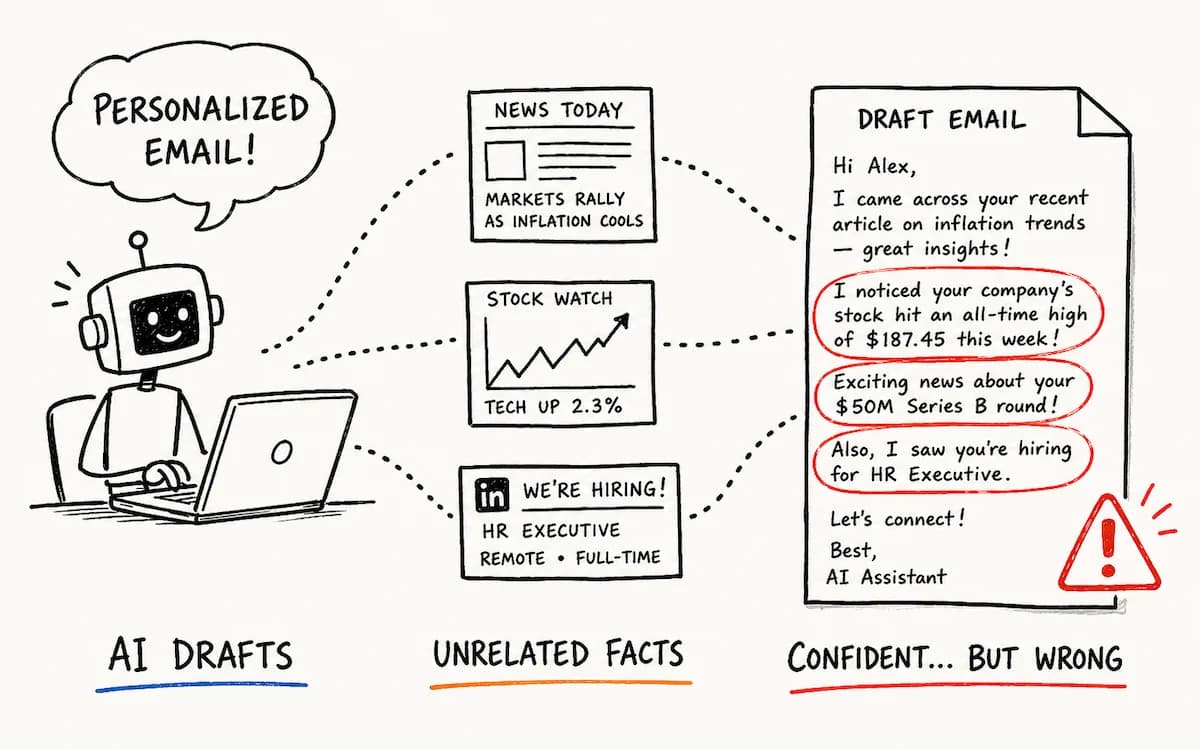 PERSONALIZED
EMAIL!
NEWS TODAY
MARKETS RALLY
AS INFLATION COOLS
STOCK WATCH
TECH UP 2.3%
in WE'RE HIRING!
HR EXECUTIVE
REMOTE • FULL-TIME
DRAFT EMAIL
Hi Alex,
I came across your recent
article on inflation trends
— great insights!
I noticed your company's
stock hit an all-time high
of $187.45 this week!
Exciting news about your
$50M Series B round!
Also, I saw you're hiring
for HR Executive.
Let's connect!
Best,
AI Assistant
!
AI DRAFTS
UNRELATED FACTS
CONFIDENT... BUT WRONG